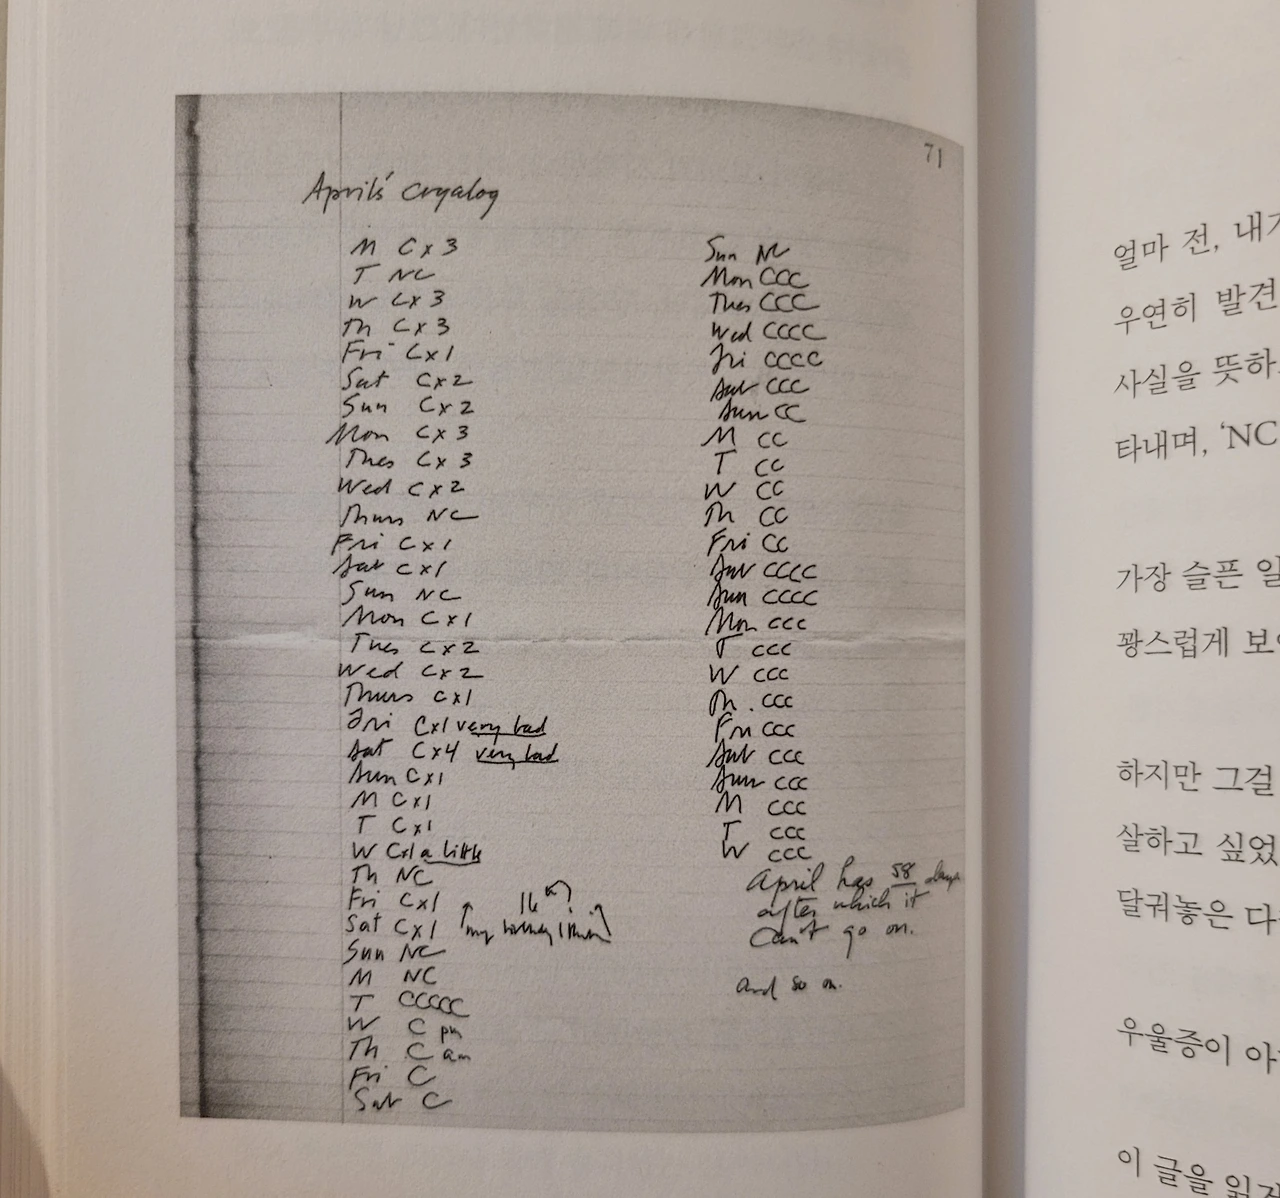 71
April's cryalog
M C x 3
T NC
W C x 3
Th C x 3
Fri C x 1
Sat C x 2
Sun C x 2
Mon C x 3
Thes C x 3
Wed C x 2
Thurs NC
Fri C x 1
Sat C x 1
Sun NC
Mon C x 1
Tues C x 2
Wed C x 2
Thurs C x 1
Fri C x 1 very bad
Sat C x 4 very bad
Sun C x 1
M C x 1
T C x 1
W C x 1 a little
Th NC
Fri C x 1
16th?
Sat C x 1 my birthday I think
Sun NC
M NC
T CCCCC
W C pm
Th C am
Fri C
Sat C
Sun NC
Mon CCC
Thes CCC
Wed CCCC
Fri CCCC
Sat CCC
Sun CC
M CC
T CC
W CC
Th CC
Fri CC
Sat CCCC
Sun CCCC
Mon CCC
T CCC
W CCC
Th. CCC
Fri CCC
Sat CCC
Sun CCC
M CCC
T CCC
W CCC
April has 58 days
after which it
can't go on.
And so on.
얼마 전, 내가
우연히 발견
사실을 뜻하
타내며, ‘NC
가장 슬픈 일
꽝스럽게 보
하지만 그걸
살하고 싶었
달궈놓은 다
우울증이 아
이 글을 읽